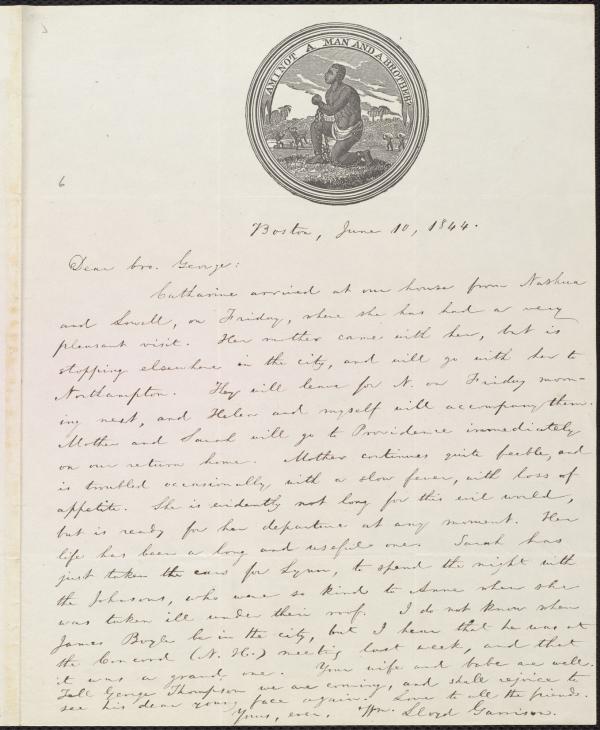 6
AM I NOT A MAN AND A BROTHER
Boston, June 10, 1844.
Dear bro. George:
Catharine arrived at our house from Nashua
and Lowell, on Friday, where she has had a very
pleasant visit. Her mother came with her, but is
stopping elsewhere in the city, and will go with her to
Northampton. They will leave for N. on Friday morn-
ing next, and Helen and myself will accompany them.
Mother and Sarah will go to Providence immediately
on our return home. Mother continues quite feeble, and
is troubled occasionally with a slow fever, with loss of
appetite. She is evidently not long for this evil world,
but is ready for her departure at any moment. Her
life has been a long and useful one. Sarah has
just taken the cars for Lynn, to spend the night with
the Johnsons, who were so kind to Anne when she
was taken ill under their roof. I do not know when
James Boyle be in the city, but I hear that he was at
the Concord (N. H.) meeting last week, and that
it was a grand one. Your wife and babe are well.
Tell George Thompson we are coming, and shall rejoice to
see his dear young face again. Love to all the friends.
Yours, ever, Wm. Lloyd Garrison.